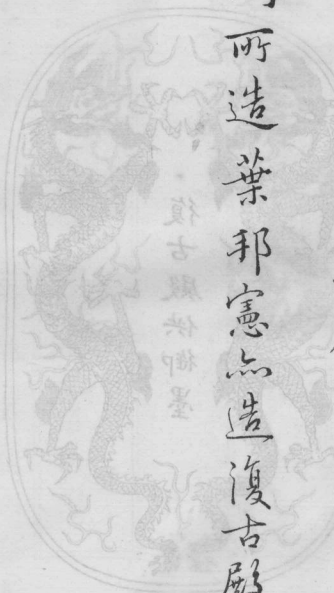 所造葉邦憲亦造復古殿
復古殿供御墨